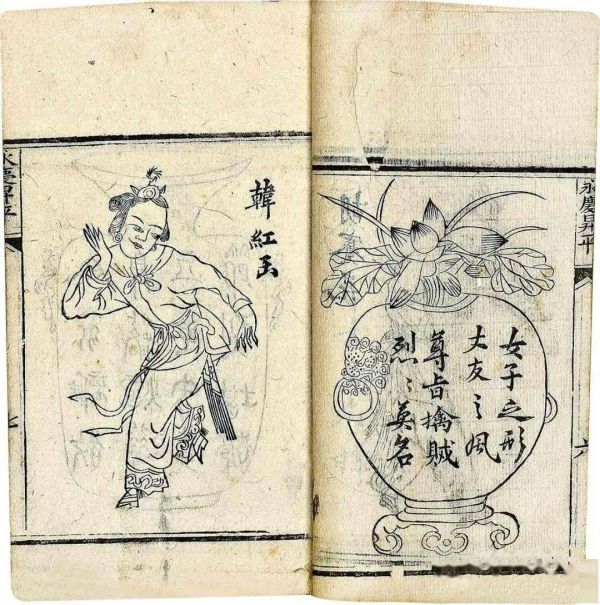 永慶昇平
六
女子之形
丈夫之風
尊旨擒賊
烈〻英名
韓紅玉
永慶昇平
七